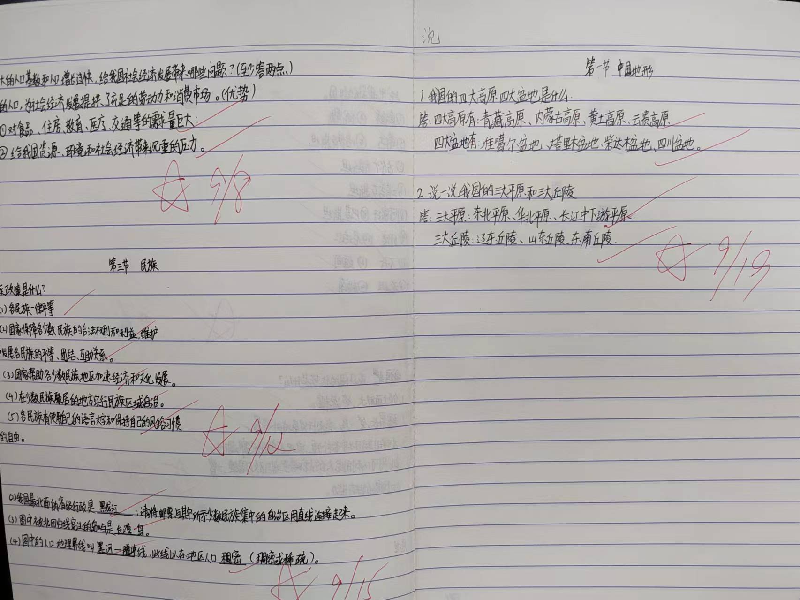 给我国社会经济发展带来哪些问题?(至少答两点)
的人口,为社会经济发展提供了充足的劳动力和消费市场。(优势)
①对食品、住房、教育、医疗、交通等的需求量巨大
②给我国资源、环境和社会经济带来沉重的压力。
9/8
第三节 民族
政策是什么?
各民族一律平等
(2)国家保障各少数民族的合法权利和利益,维护
发展各民族的平等、团结、互助关系。
(3)国家帮助各少数民族地区加速经济和文化发展。
(4)在少数民族聚居的地方实行民族区域自治。
(5)各民族有使用自己的语言文字和保持自己的风俗习惯
的自由。
9/12
(3)图中
(4)图中的 地理界线叫黑河—腾冲线,此线以东地区人口稠密(稠密或稀疏)。
9/15
沈
第一节 中国地形
1.我国的四大高原四大盆地是什么
答:四大高原有:青藏高原、内蒙古高原、黄土高原、云贵高原
四大盆地有:准噶尔盆地、塔里木盆地、柴达木盆地、四川盆地。
2.说一说我国的三大平原和三大丘陵
答:三大平原:东北平原、华北平原、长江中下游平原
三大丘陵:辽东丘陵、山东丘陵、东南丘陵
9/19